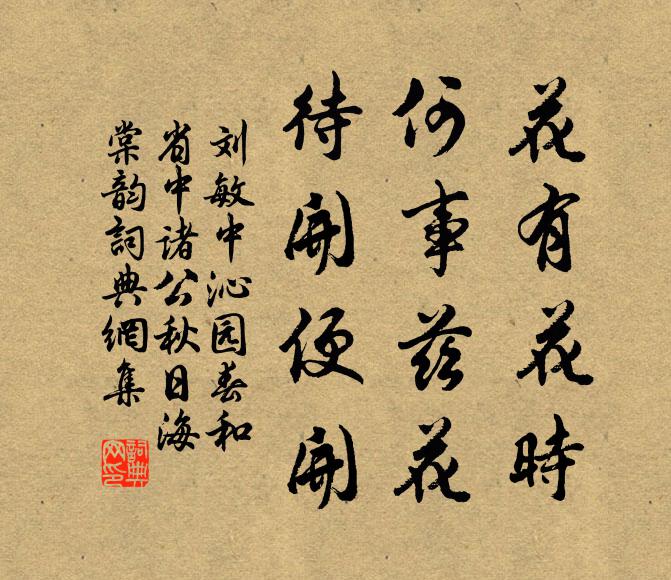 花有花時
何事茲花
待開便開
刘敏中沁园春和
省中諸公秋日海
棠韵詞典網集
詞典
网印